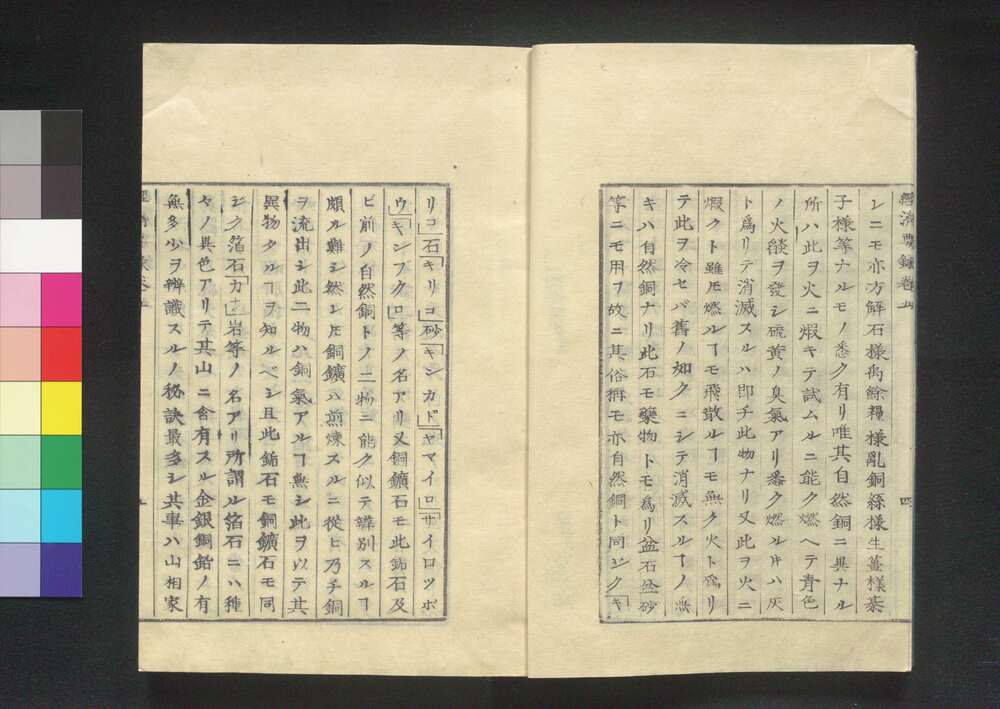 經濟要録卷五
シニモ亦方解石樣禹餘糧樣亂銅絲樣生薑樣棗
子樣等ナルモノ悉ク有リ唯其自然銅ニ異ナル
所ハ此ヲ火ニ煆キテ試ムルニ能ク燃ヘテ青色
ノ火燄ヲ發シ硫黄ノ臭氣アリ悉ク燃ル𪜈ハ灰
ト爲リテ消滅スルハ即チ此物ナリ又此ヲ火ニ
煆クト雖𪜈燃ルヿモ飛散ルヿモ無ク火ト爲リ
テ此ヲ冷セバ舊ノ如クニシテ消滅スルヿノ無
キハ自然銅ナリ此石モ藥物トモ爲リ盆石盆砂
等ニモ用フ故ニ其俗稱モ亦自然銅ト同シク「キ
四
リコ」石「キリコ」砂「キンカド」「ヤマイロ」「サイロツポ
ウ」「キンブク」ロ等ノ名アリ又銅鑛石モ此鈽石及
ビ前ノ自然銅トノ二物ニ能ク似テ辨别スルヿ
頗ル難シ然シ𪜈銅鑛ハ煎煉スルニ從ヒ乃チ銅
ヲ流出シ此二物ハ銅氣アルヿ無シ此ヲ以テ其
異物タルヿヲ知ルベシ且此鈽石モ銅鑛石モ同
シク箔石「カナ」岩等ノ名アリ所謂ル箔石ニハ種
々ノ異色アリテ其山ニ含有スル金銀銅鉛ノ有
無多少ヲ辨識スルノ秘訣最多シ其事ハ山相家